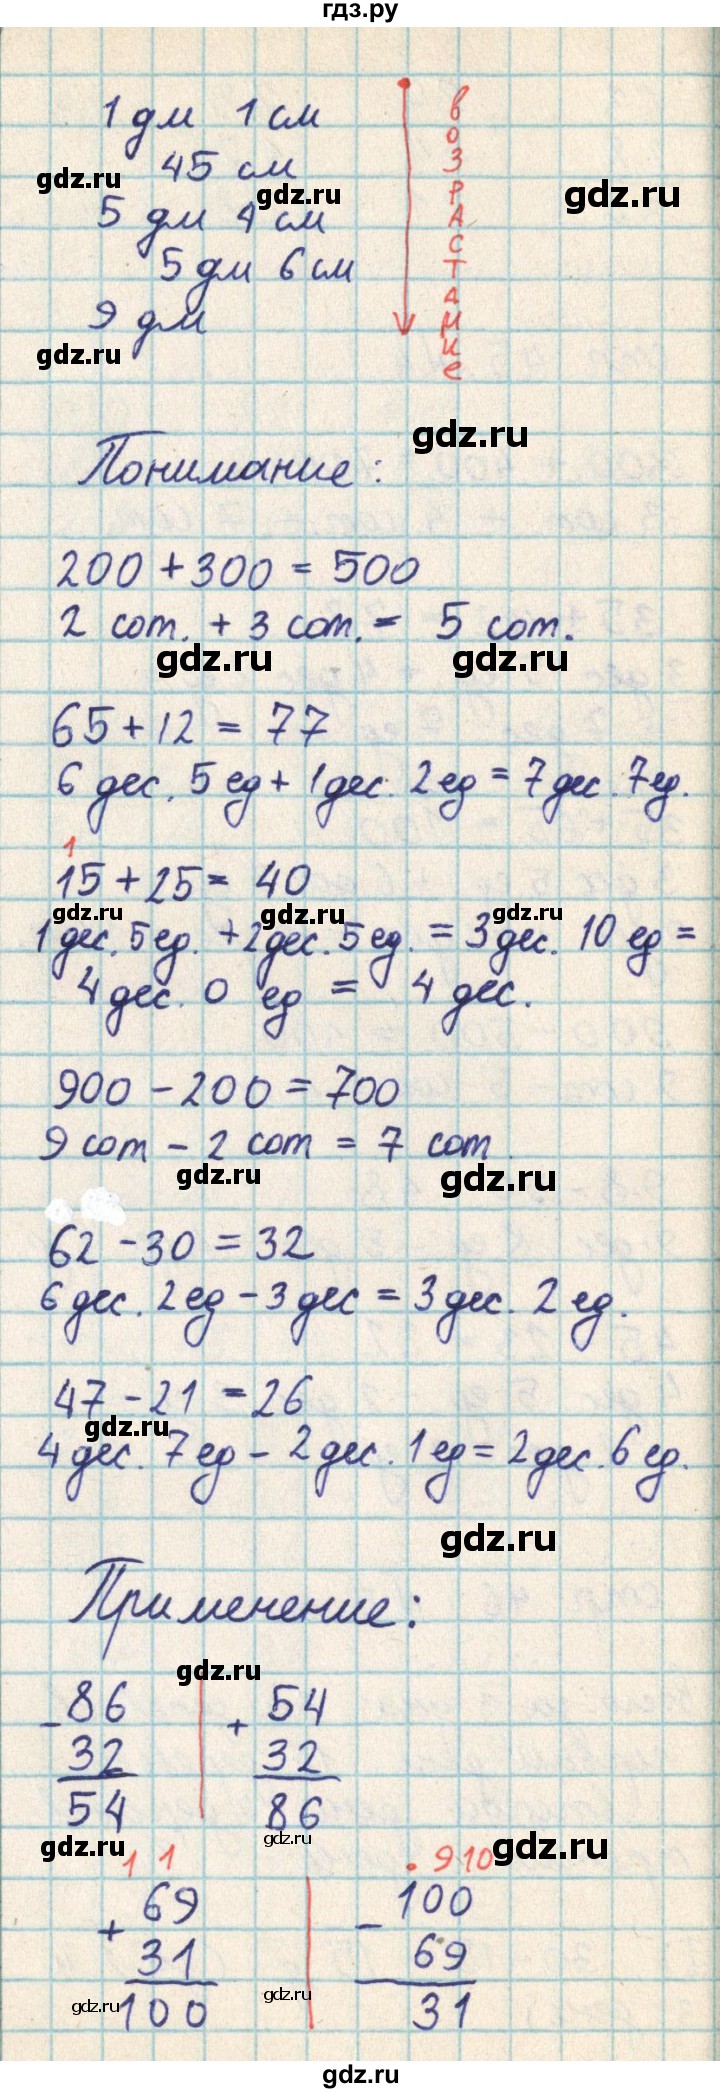 гдз.ру
1 дм 1 см
45 см
gdz.ru
gdz.ru
gdz.ru
5 дм 4 см
5 дм 6 см
9 дм
gdz.ru
возрастание
gdz.ru
Понимание:
200 + 300 = 500
2 сот. + 3 сот. = 5 сот.
gdz.ru gdz.ru
65 + 12 = 77
6 дес. 5 ед + 1 дес. 2 ед = 7 дес. 7 ед.
1
15 + 25 = 40
gdz.ru gdz.ru gdz.ru
1 дес. 5 ед. + 2 дес. 5 ед. = 3 дес. 10 ед =
4 дес. 0 ед = 4 дес.
900 - 200 = 700
9 сот - 2 сот = 7 сот
gdz.ru gdz.ru
62 - 30 = 32
6 дес. 2 ед - 3 дес = 3 дес. 2 ед.
47 - 21 = 26
gdz.ru
4 дес. 7 ед - 2 дес. 1 ед = 2 дес. 6 ед.
gdz.ru
Применение:
gdz.ru
- 86 + 54
32 32
54 86
gdz.ru gdz.ru gdz.ru
1 1 . 9 10
+ 69 - 100
31 69
100 31
gdz.ru gdz.ru
gdz.ru